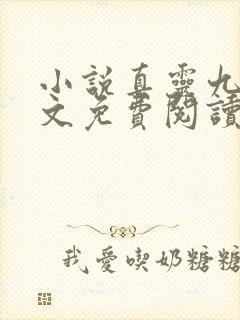 小說真靈九
文免費閱讀
我愛喫奶糖糖